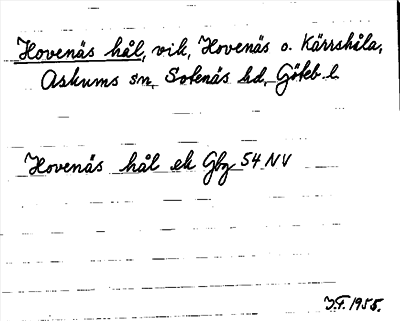 Hovenäs hål, vik, Hovenäs o. Kärrshåla,
Askums sn, Sotenäs hd, Göteb. l.
Hovenäs hål ek Gbg 54 NV
I.F. 1955.